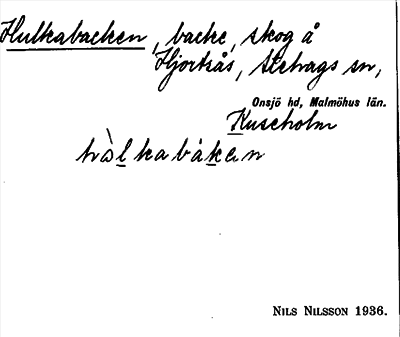 Hulkabacken, backe, skog å
Hjortsås, Stehags sn,
Onsjö hd, Malmöhus län.
Kuseholm
hòlkabákan
NILS NILSSON 1936.